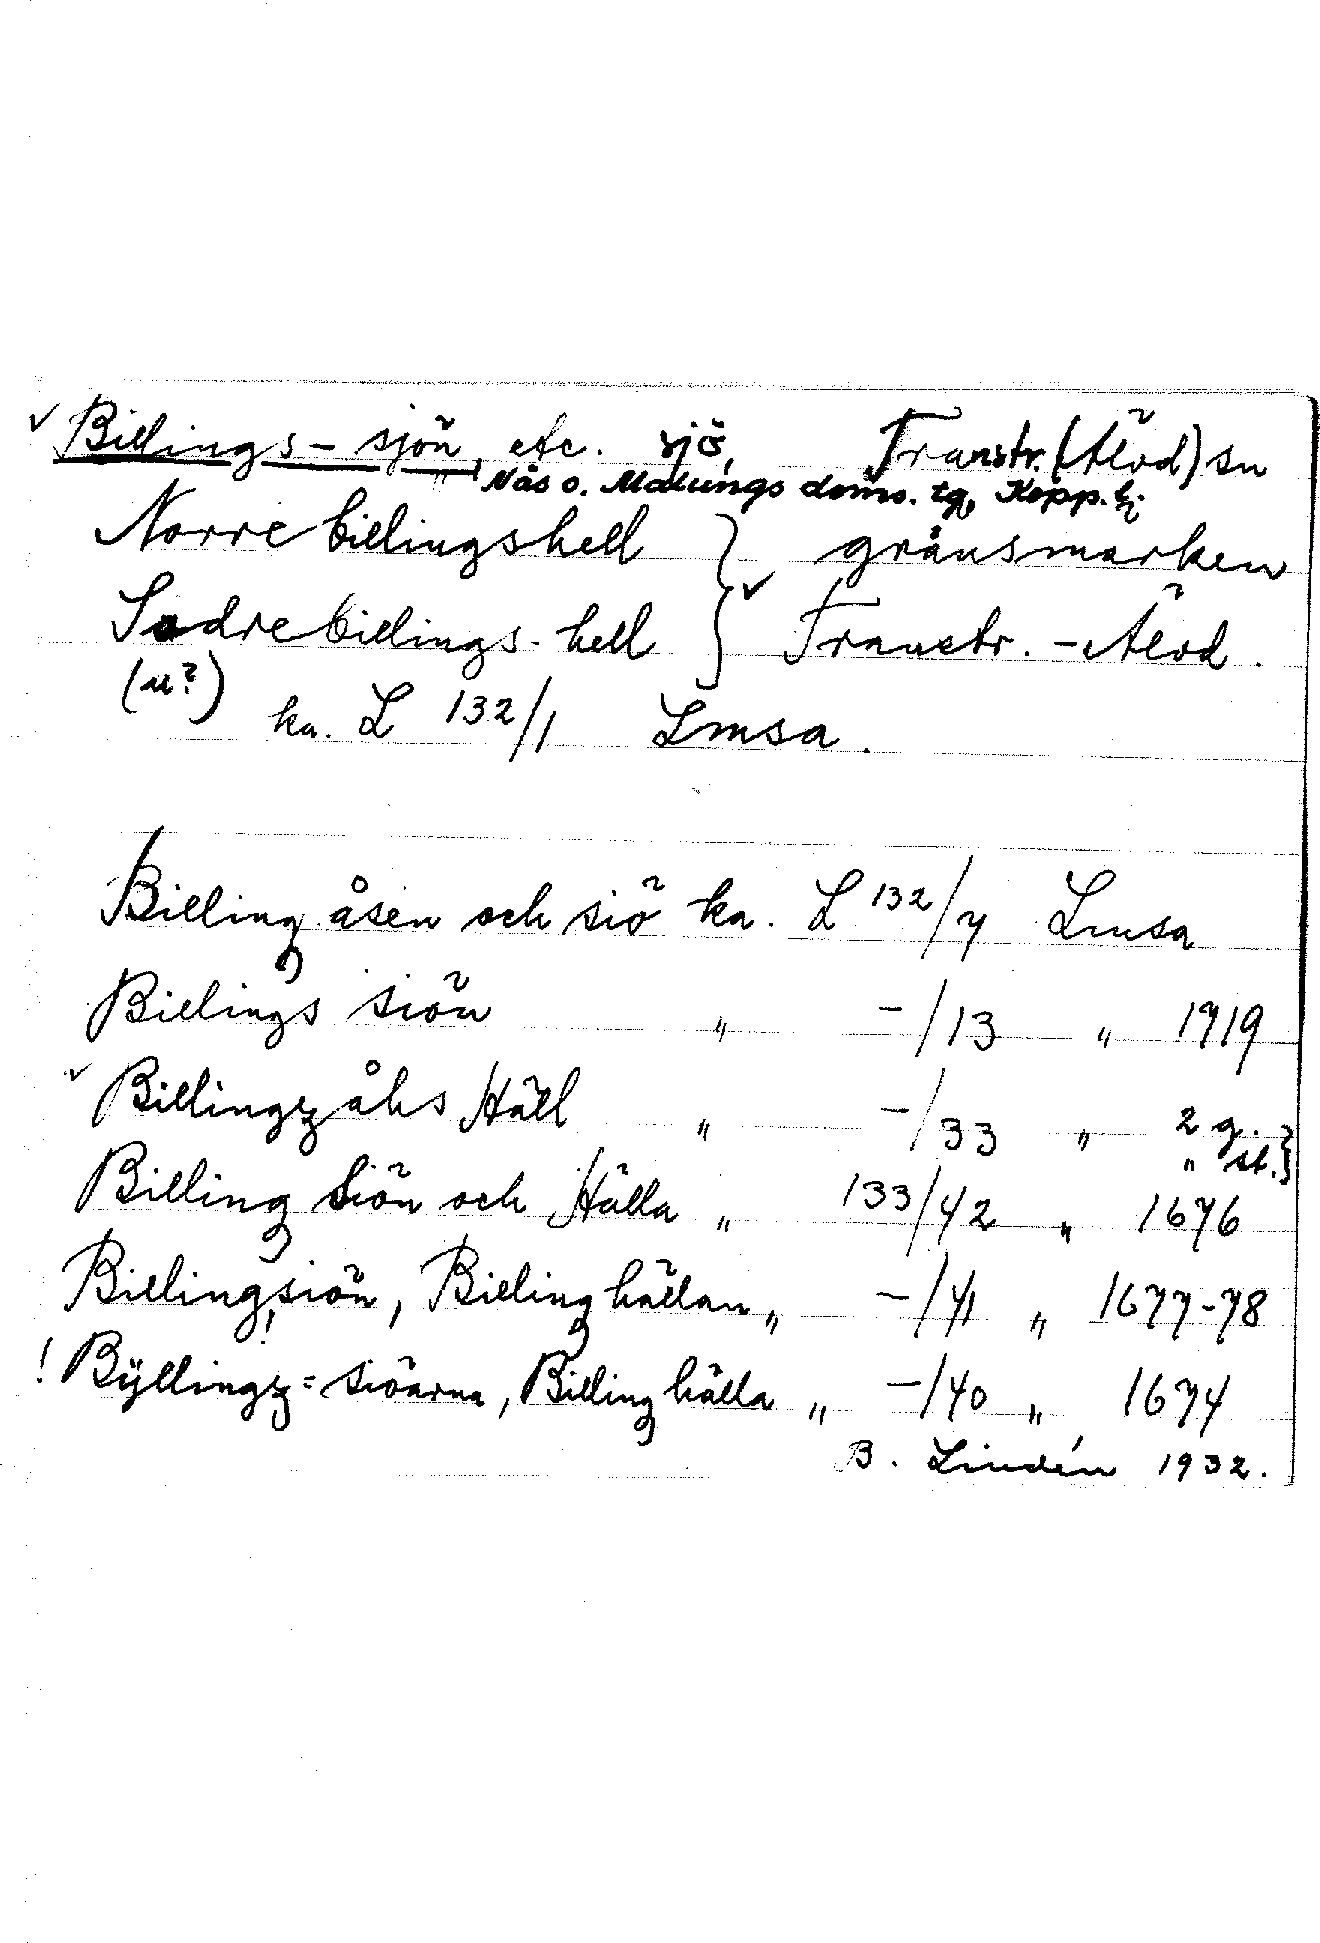 Billings-sjön, etc. sjö, Transtr. (Älvd) sn
Nås o. Malungs doms. tg, Kopp. l.
Norre billingshell } gränsmarken
Sodre billings-hell } Transtr. - Älvd.
(u?)
ka. L 132/1 Lmsa.
Billing åsen och siö ka. L 132/7 Lmsa
Billings siön " -/13 " 1719
Billingz åhs Häll " -/33 " 2 g. }
" st. }
Billing Siön och Hälla " 133/42 " 1676
Billingsiön, Billing hällan " -/41 " 1677-78
! Byllingz=siöarna, Billing hälla " -/40 " 1674
B. Lindén 1932.